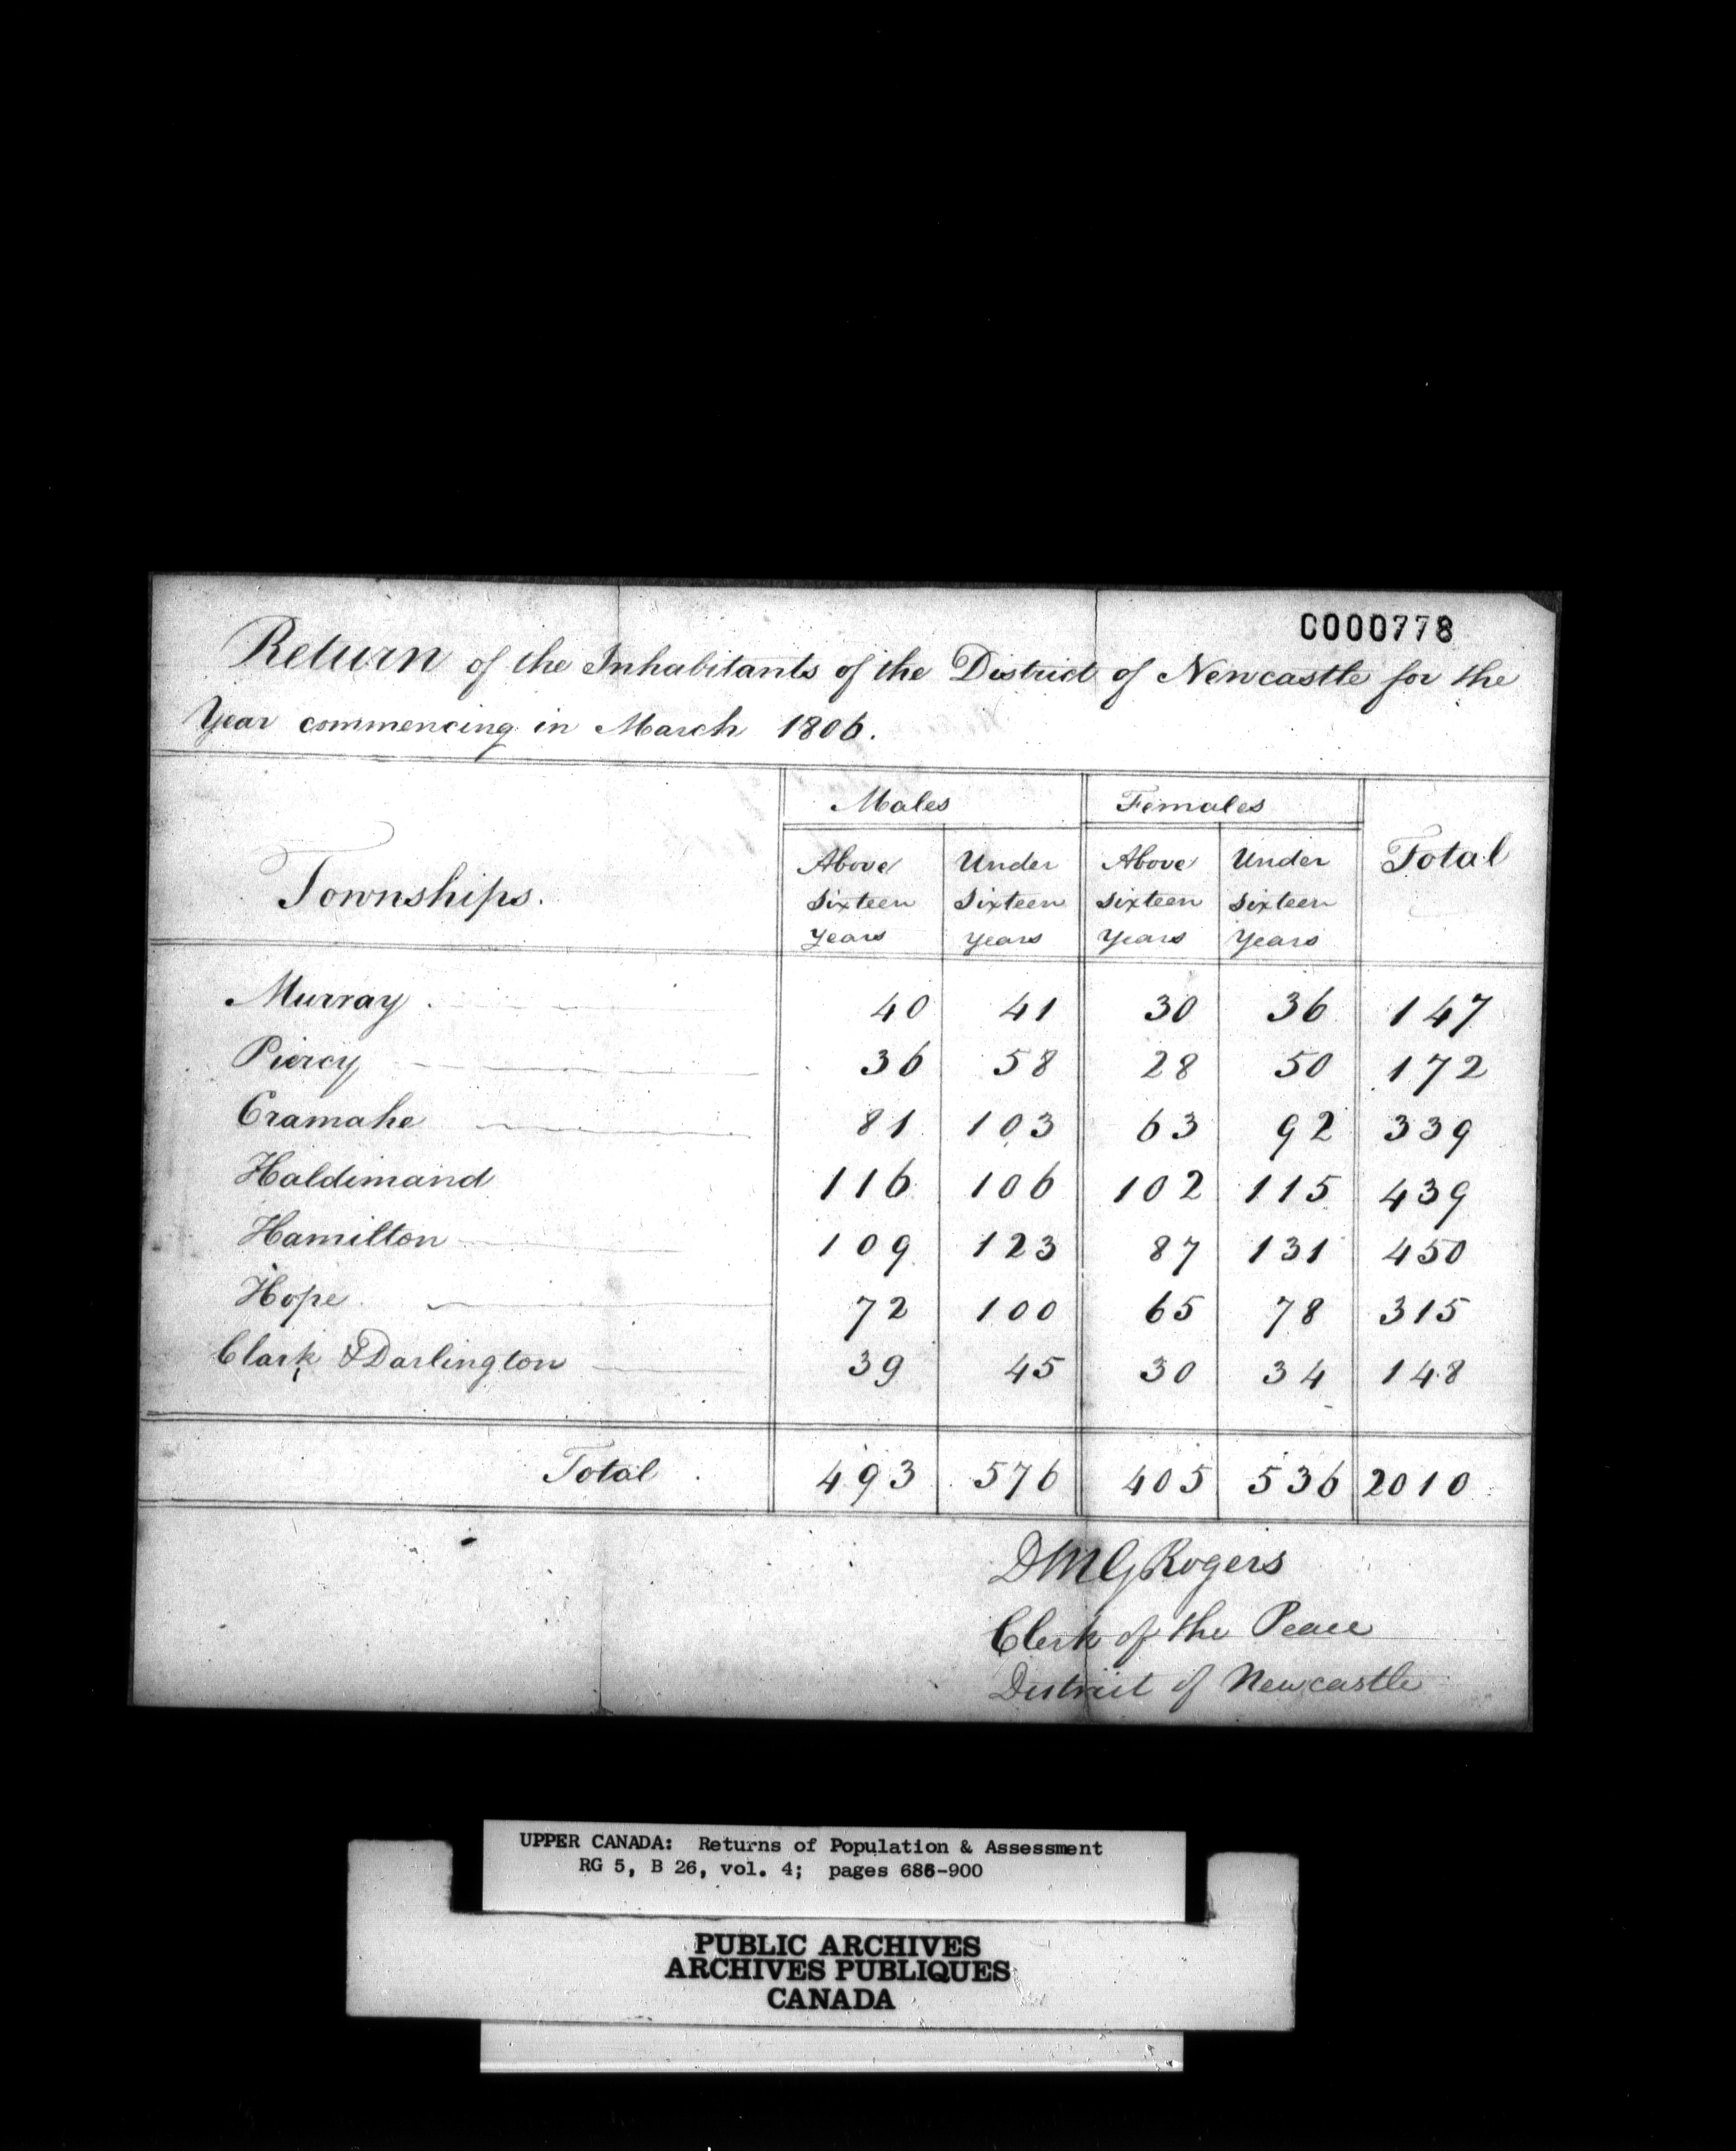 C000778
Return of the Inhabitants of the District of Newcastle for the
Year commencing in March 1806.
Males Females
Townships. Above Sixteen Years Under Sixteen Years Above Sixteen Years Under Sixteen Years Total
Murray 40 41 30 36 147
Piercy 36 58 28 50 172
Cramahe 81 103 63 92 339
Haldimand 116 106 102 115 439
Hamilton 109 123 87 131 450
Hope 72 100 65 78 315
Clark & Darlington 39 45 30 34 148
Total 493 576 405 536 2010
DMG Rogers
Clerk of the Peace
District of Newcastle
UPPER CANADA: Returns of Population & Assessment
RG 5, B 26, vol. 4; pages 686-900
PUBLIC ARCHIVES
ARCHIVES PUBLIQUES
CANADA